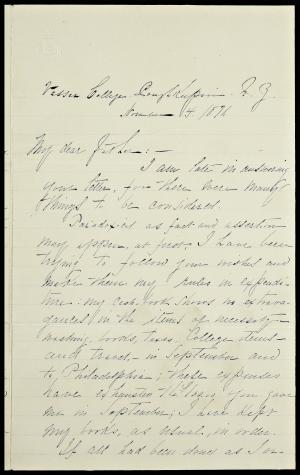 Vassar College. Poughkeepsie. N. Y.
November 4 1876
My dear Father:-
I am late in answering
your letter, for there were many
things to be considered.
Paradoxical as fact and assertion
may appear, at first, I have been
trying to follow your wishes and
make them my rules in expendi-
ture: my cash book shows no extrava-
gances, in the items of necessity-
washing, books, taxes, College items-
and travel,- in September and
to Philadelphia; these expenses
have exhausted the you gave
me in September; I have kept
my books, as usual, in order.
If all had been done as I